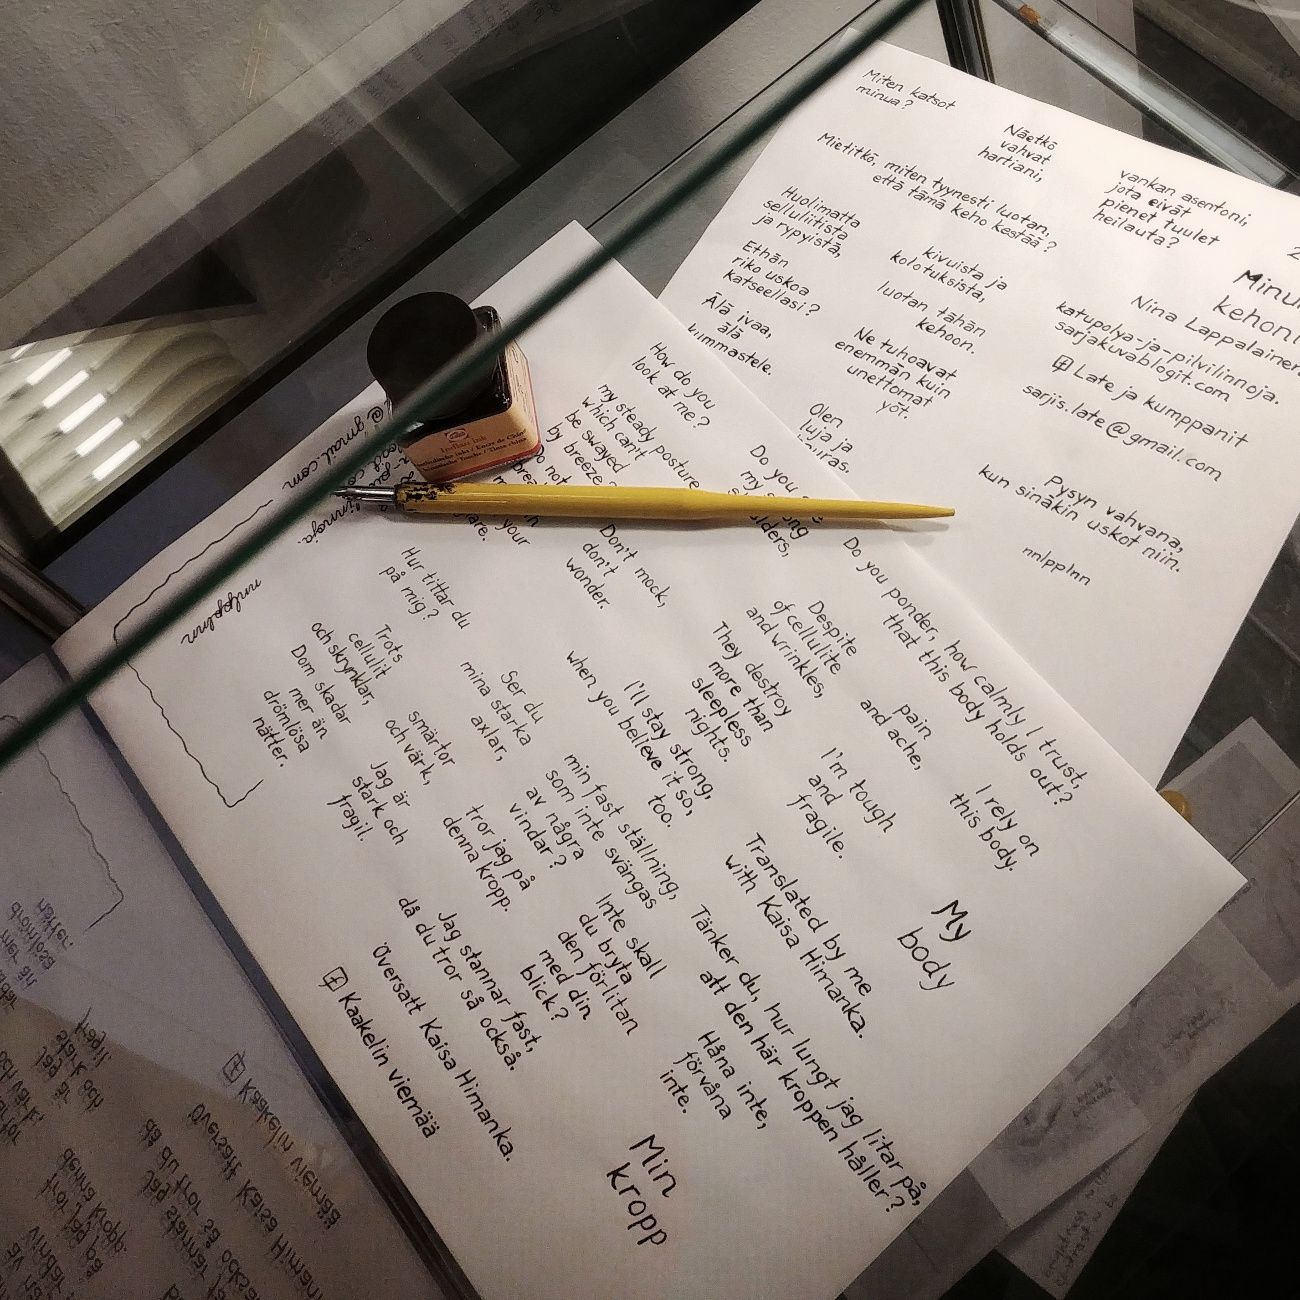 Miten katsot
minua?
Näetkö
vahvat
hartiani,
vankan asentoni,
jota eivät
pienet tuulet
heilauta?
Mietitkö, miten tyynesti luotan,
että tämä keho kestää?
Huolimatta
selluliitista
ja rypyistä,
kivuista ja
kolotuksista,
luotan tähän
kehoon.
Ethän
riko uskoa
katseellasi?
Älä ivaa,
älä
kummastele.
Ne tuhoavat
enemmän kuin
unettomat
yöt.
Olen
luja ja
Pysyn vahvana,
kun sinäkin uskot niin.
nnlpplnn
Nina Lappalainen
katupolya-ja-pilvilinnoja.
sarjakuvablogit.com
Late ja kumppanit
sarjis.late@gmail.com
How do you
look at me?
Do you
my strong
my steady posture
which can't
be swayed
by breeze?
Do you ponder, how calmly I trust,
that this body holds out?
Despite
of cellulite
and wrinkles,
pain
and ache,
I rely on
this body.
your
Don't mock,
don't
wonder.
They destroy
more than
sleepless
nights.
I'm tough
and
fragile.
I'll stay strong,
when you believe it so,
too.
My
body
Translated by me
with Kaisa Himanka.
Hur tittar du
på mig?
Ser du
mina starka
axlar,
min fast ställning,
som inte svängas
av några
vindar?
Tänker du, hur lungt jag litar på,
att den här kroppen håller?
Trots
cellulit
och skrynklar,
smärtor
och värk,
tror jag på
denna kropp.
Inte skall
du bryta
den förlitan
med din
blick?
Håna inte,
förvåna
inte.
Dom skadar
mer än
drömlösa
nätter.
Jag är
stark och
fragil.
Jag stannar fast,
då du tror så också.
Min
kropp
Översatt Kaisa Himanka.
Kaakelin viemää
nnlpplnn
@gmail.com
Indian Ink